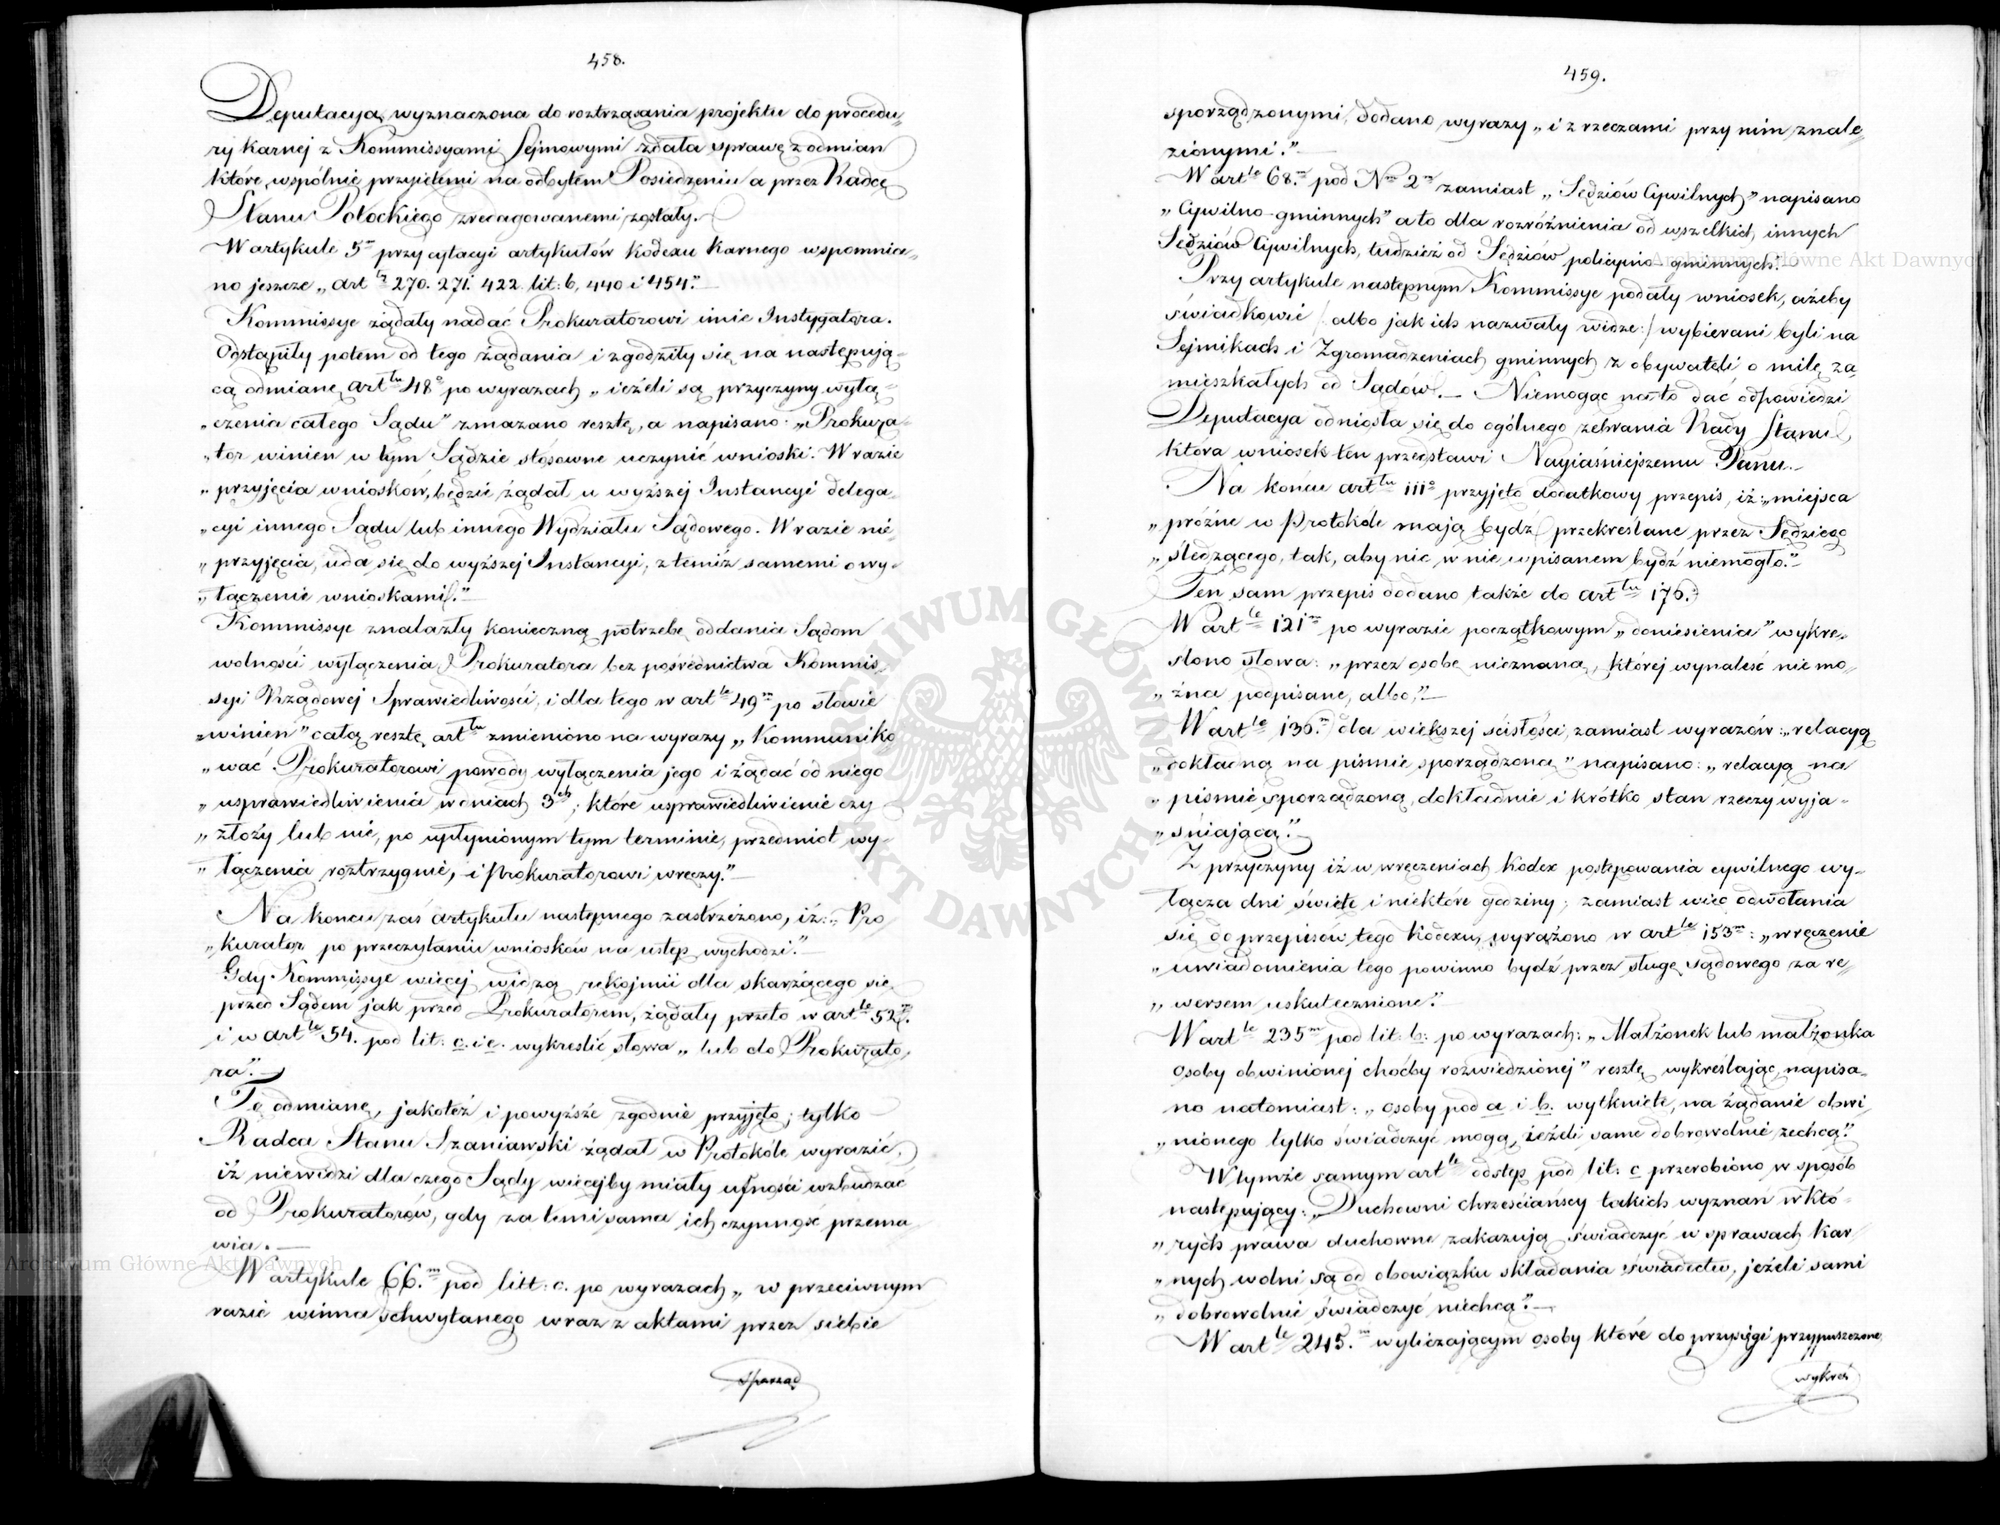 458.
Deputacya wyznaczona do roztrząsania projektu do procedu„
ry karnej z Kommissyami Sejmowymi zdała sprawę z odmian
które wspólnie przyjętemi na odbytem Posiedzeniu a przez Radcę
Stanu Potockiego zredagowanemi zostały.
W artykule 5m przy cytacyi artykułów Kodexu Karnego wspomnia„
no jeszcze „art. 270. 271. 422. lit: b, 440 i 454."
Kommissye żądały nadać Prokuratorowi imie Instygatora.
Odstąpiły potem od tego żądania i zgodziły się na następują„
cą odmianę, arttu 48o po wyrazach „ ieżeli są przyczyny wyłą„
„czenia całego Sądu" zmazano resztę, a napisano: „Prokura„
„tor winien w tym Sądzie stósowne uczynić wnioski. W razie
„przyjęcia wniosków, będzie żądał u wyższej Instancyi delega„
„cyi innego Sądu lub innego Wydziału Sądowego. W razie nie„
„przyjęcia, uda się do wyższej Instancyi, z temiż samemi o wy„
„łączenie wnioskami."
Kommissye znalazły konieczną potrzebę oddania Sądom
wolności wyłączenia Prokuratora bez pośrednictwa Kommis„
syi Rządowej Sprawiedliwości, i dla tego w artle 49m po słowie
„winien" całą resztę arttu zmieniono na wyrazy „ kommuniko
„wać Prokuratorowi powody wyłączenia jego i żądać od niego
„usprawiedliwienia w dniach 3ch; które usprawiedliwienie czy
„złoży lub nie, po upłynionym tym terminie, przedmiot wy„
„łączenia roztrzygnie, i Prokuratorowi wręczy."
Na końcu zaś artykułu następnego zastrzeżono, iż: „Pro
„kurator po przeczytaniu wniosków na ustęp wychodzi."
Gdy Kommissye więcej widzą rękojmii dla skarżącego się
przed Sądem jak przed Prokuratorem, żądały przeto w artle 52m.
i w artle 54. pod lit: c. i e. wykreślić słowa „ lub do Prokurato„
ra".
Tę odmianę, jakoteż i powyższe zgodnie przyjęto; tylko
Radca Stanu Szaniawski żądał w Protokóle wyrazić,
iż niewidzi dla czego Sądy więcejby miały ufności wzbudzać
od Prokuratorów, gdy za temi sama ich czynność przema
wia.
W artykule 66.m pod litt: c. po wyrazach „ w przeciwnym
razie winna schwytanego wraz z aktami przez siebie
sporząd
459.
sporządzonymi, dodano wyrazy „ i z rzeczami przy nim znale„
zionymi."
W artle 68.m pod Nm 2m zamiast „ Sędziów Cywilnych" napisano
„Cywilno-gminnych" a to dla rozróżnienia od wszelkich innych
Sędziów Cywilnych, tudzież od Sędziów policyino-gminnych.
Przy artykule następnym Kommissye podały wniosek, ażeby
świadkowie /: albo jak ich nazwały widze :/ wybierani byli na
Sejmikach i Zgromadzeniach gminnych z obywateli o milę za„
mieszkałych od Sądów. Niemogąc na to dać odpowiedzi
Deputacya odniosła się do ogólnego zebrania Rady Stanu,
która wniosek ten przedstawi Nayiaśniejszemu Panu.
Na końcu arttu 111o przyjęto dodatkowy przepis, iż: „miejsca
„próżne w protokóle mają bydź przekreślane przez Sędziego
„śledzącego, tak, aby nic w nie wpisanem bydź niemogło."
Ten sam przepis dodano także do arttu 176.
W artle 121m po wyrazie początkowym „doniesienia" wykre„
ślono słowa: „przez osobę nieznaną, której wynaleść niemo„
„żna podpisane, albo,"
W artle 136.m dla większej ścisłości, zamiast wyrazów: „relacyą
„dokładną na piśmie sporządzoną" napisano: „relacyą na
„piśmie sporządzoną, dokładnie i krótko stan rzeczy wyja„
„śniającą."
Z przyczyny iż w wręczeniach Kodex postępowania cywilnego wy„
łącza dni święte i niektóre godziny; zamiast więc odwołania
się do przepisów tego Kodexu, wyrażono w artle 153m: „wręczenie
„uwiadomienia tego powinno bydź przez sługę sądowego za re„
„wersem uskutecznione."
W artle 235m pod lit: b: po wyrazach: „Małżonek lub małżonka
osoby obwinionej choćby rozwiedzionej" resztę wykreślając, napisa„
no natomiast: „osoby pod a i b. wytknięte, na żądanie obwi
„nionego tylko świadczyć mogą, ieżeli same dobrowolnie zechcą."
W tymże samym artle odstęp pod lit: c przerobiono w sposób
następujący: „Duchowni chrześciańscy takich wyznań w któ„
„rych prawa duchowne zakazują świadczyć w sprawach kar„
„nych wolni są od obowiązku składania świadectw, jeżeli sami
„dobrowolnie świadczyć niechcą".
W artle 245.m wyliczającym osoby które do przysięgi przypuszczone
wykreś
Archiwum Główne Akt Dawnych
Archiwum Główne Akt Dawnych
ARCHIWUM GŁÓWNE AKT DAWNYCH